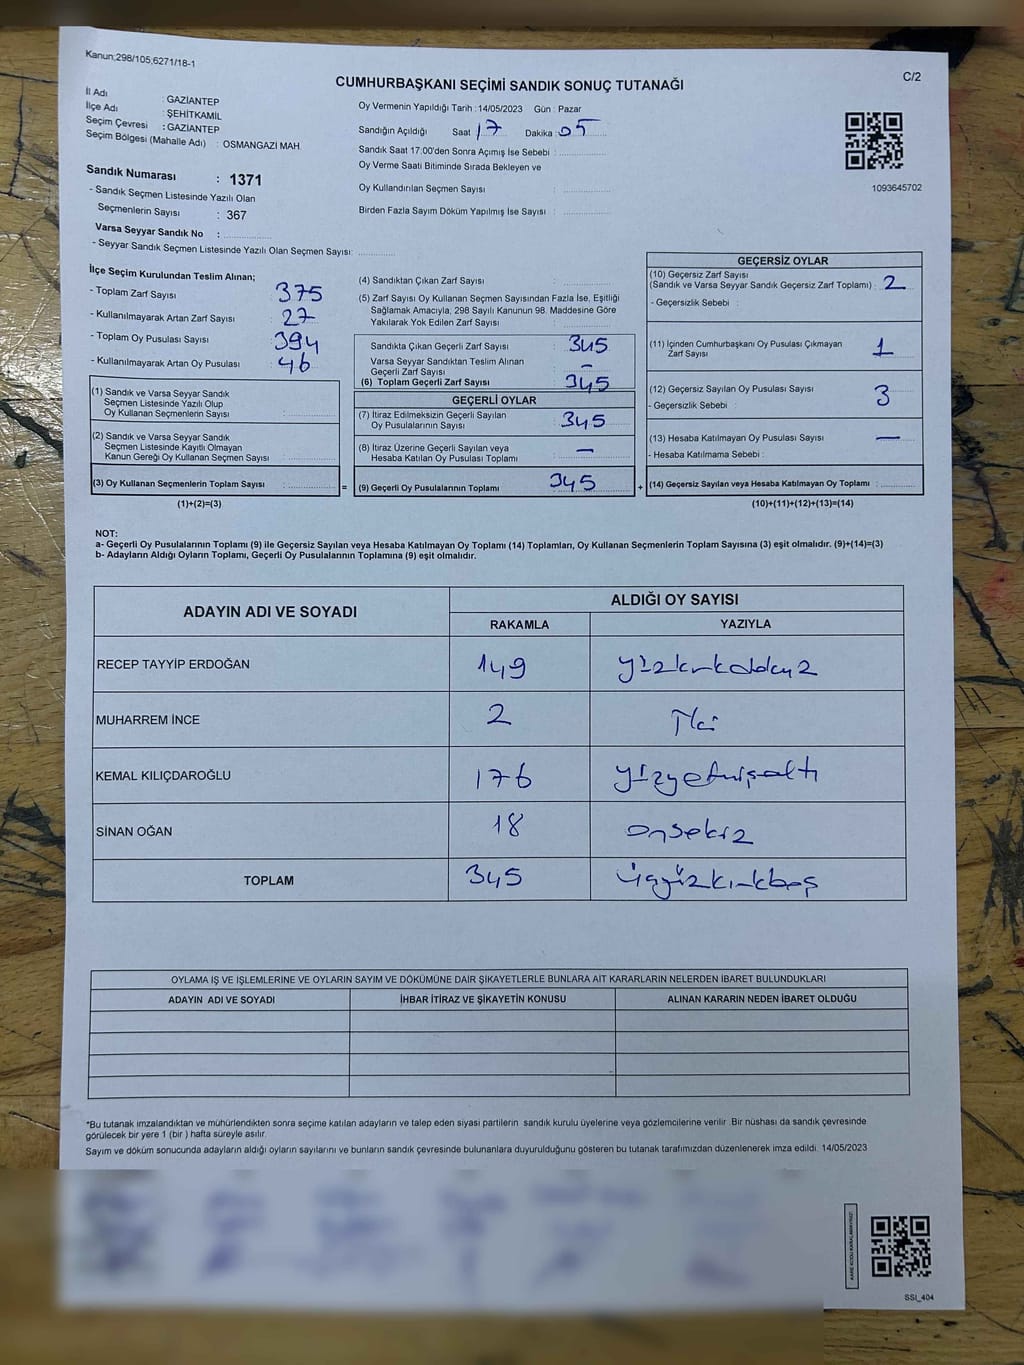 Kanun;298/105,6271/18-1
CUMHURBAŞKANI SEÇİMİ SANDIK SONUÇ TUTANAĞI
C/2
İl Adı : GAZİANTEP
İlçe Adı : ŞEHİTKAMİL
Seçim Çevresi : GAZİANTEP
Seçim Bölgesi (Mahalle Adı) : OSMANGAZI MAH.
Oy Vermenin Yapıldığı Tarih : 14/05/2023 Gün : Pazar
Sandığın Açıldığı Saat 17 Dakika : 05
Sandık Saat 17:00'den Sonra Açımış İse Sebebi :
Oy Verme Saati Bitiminde Sırada Bekleyen ve
Oy Kullandırılan Seçmen Sayısı :
Birden Fazla Sayım Döküm Yapılmış İse Sayısı :
1093645702
Sandık Numarası : 1371
- Sandık Seçmen Listesinde Yazılı Olan
Seçmenlerin Sayısı : 367
Varsa Seyyar Sandık No :
- Seyyar Sandık Seçmen Listesinde Yazılı Olan Seçmen Sayısı:
İlçe Seçim Kurulundan Teslim Alınan;
- Toplam Zarf Sayısı 375
- Kullanılmayarak Artan Zarf Sayısı 27
- Toplam Oy Pusulası Sayısı 394
- Kullanılmayarak Artan Oy Pusulası 46
(1) Sandık ve Varsa Seyyar Sandık
Seçmen Listesinde Yazılı Olup
Oy Kullanan Seçmenlerin Sayısı :
(2) Sandık ve Varsa Seyyar Sandık
Seçmen Listesinde Kayıtlı Olmayan
Kanun Gereği Oy Kullanan Seçmen Sayısı :
(3) Oy Kullanan Seçmenlerin Toplam Sayısı :
(1)+(2)=(3)
(4) Sandıktan Çıkan Zarf Sayısı :
(5) Zarf Sayısı Oy Kullanan Seçmen Sayısından Fazla İse, Eşitliği
Sağlamak Amacıyla; 298 Sayılı Kanunun 98. Maddesine Göre
Yakılarak Yok Edilen Zarf Sayısı :
Sandıkta Çıkan Geçerli Zarf Sayısı : 345
Varsa Seyyar Sandıktan Teslim Alınan
Geçerli Zarf Sayısı : -
(6) Toplam Geçerli Zarf Sayısı : 345
GEÇERLİ OYLAR
(7) İtiraz Edilmeksizin Geçerli Sayılan
Oy Pusulalarının Sayısı : 345
(8) İtiraz Üzerine Geçerli Sayılan veya
Hesaba Katılan Oy Pusulası Toplamı : -
= (9) Geçerli Oy Pusulalarının Toplamı : 345 +
GEÇERSİZ OYLAR
(10) Geçersiz Zarf Sayısı
(Sandık ve Varsa Seyyar Sandık Geçersiz Zarf Toplamı) : 2
- Geçersizlik Sebebi :
(11) İçinden Cumhurbaşkanı Oy Pusulası Çıkmayan
Zarf Sayısı : 1
(12) Geçersiz Sayılan Oy Pusulası Sayısı : 3
- Geçersizlik Sebebi :
(13) Hesaba Katılmayan Oy Pusulası Sayısı : -
- Hesaba Katılmama Sebebi :
(14) Geçersiz Sayılan veya Hesaba Katılmayan Oy Toplamı :
(10)+(11)+(12)+(13)=(14)
NOT:
a- Geçerli Oy Pusulalarının Toplamı (9) ile Geçersiz Sayılan veya Hesaba Katılmayan Oy Toplamı (14) Toplamları, Oy Kullanan Seçmenlerin Toplam Sayısına (3) eşit olmalıdır. (9)+(14)=(3)
b- Adayların Aldığı Oyların Toplamı, Geçerli Oy Pusulalarının Toplamına (9) eşit olmalıdır.
ADAYIN ADI VE SOYADI
ALDIĞI OY SAYISI
RAKAMLA YAZIYLA
RECEP TAYYİP ERDOĞAN 149 yüzkırkdokuz
MUHARREM İNCE 2 İki
KEMAL KILIÇDAROĞLU 176 yüzyetmişaltı
SİNAN OĞAN 18 onsekiz
TOPLAM 345 üçyüzkırkbeş
OYLAMA İŞ VE İŞLEMLERİNE VE OYLARIN SAYIM VE DÖKÜMÜNE DAİR ŞİKAYETLERLE BUNLARA AİT KARARLARIN NELERDEN İBARET BULUNDUKLARI
ADAYIN ADI VE SOYADI İHBAR İTİRAZ VE ŞİKAYETİN KONUSU ALINAN KARARIN NEDEN İBARET OLDUĞU
*Bu tutanak imzalandıktan ve mühürlendikten sonra seçime katılan adayların ve talep eden siyasi partilerin sandık kurulu üyelerine veya gözlemcilerine verilir. Bir nüshası da sandık çevresinde
görülecek bir yere 1 (bir) hafta süreyle asılır.
Sayım ve döküm sonucunda adayların aldığı oyların sayılarını ve bunların sandık çevresinde bulunanlara duyurulduğunu gösteren bu tutanak tarafımızdan düzenlenerek imza edildi. 14/05/2023
SSI_404